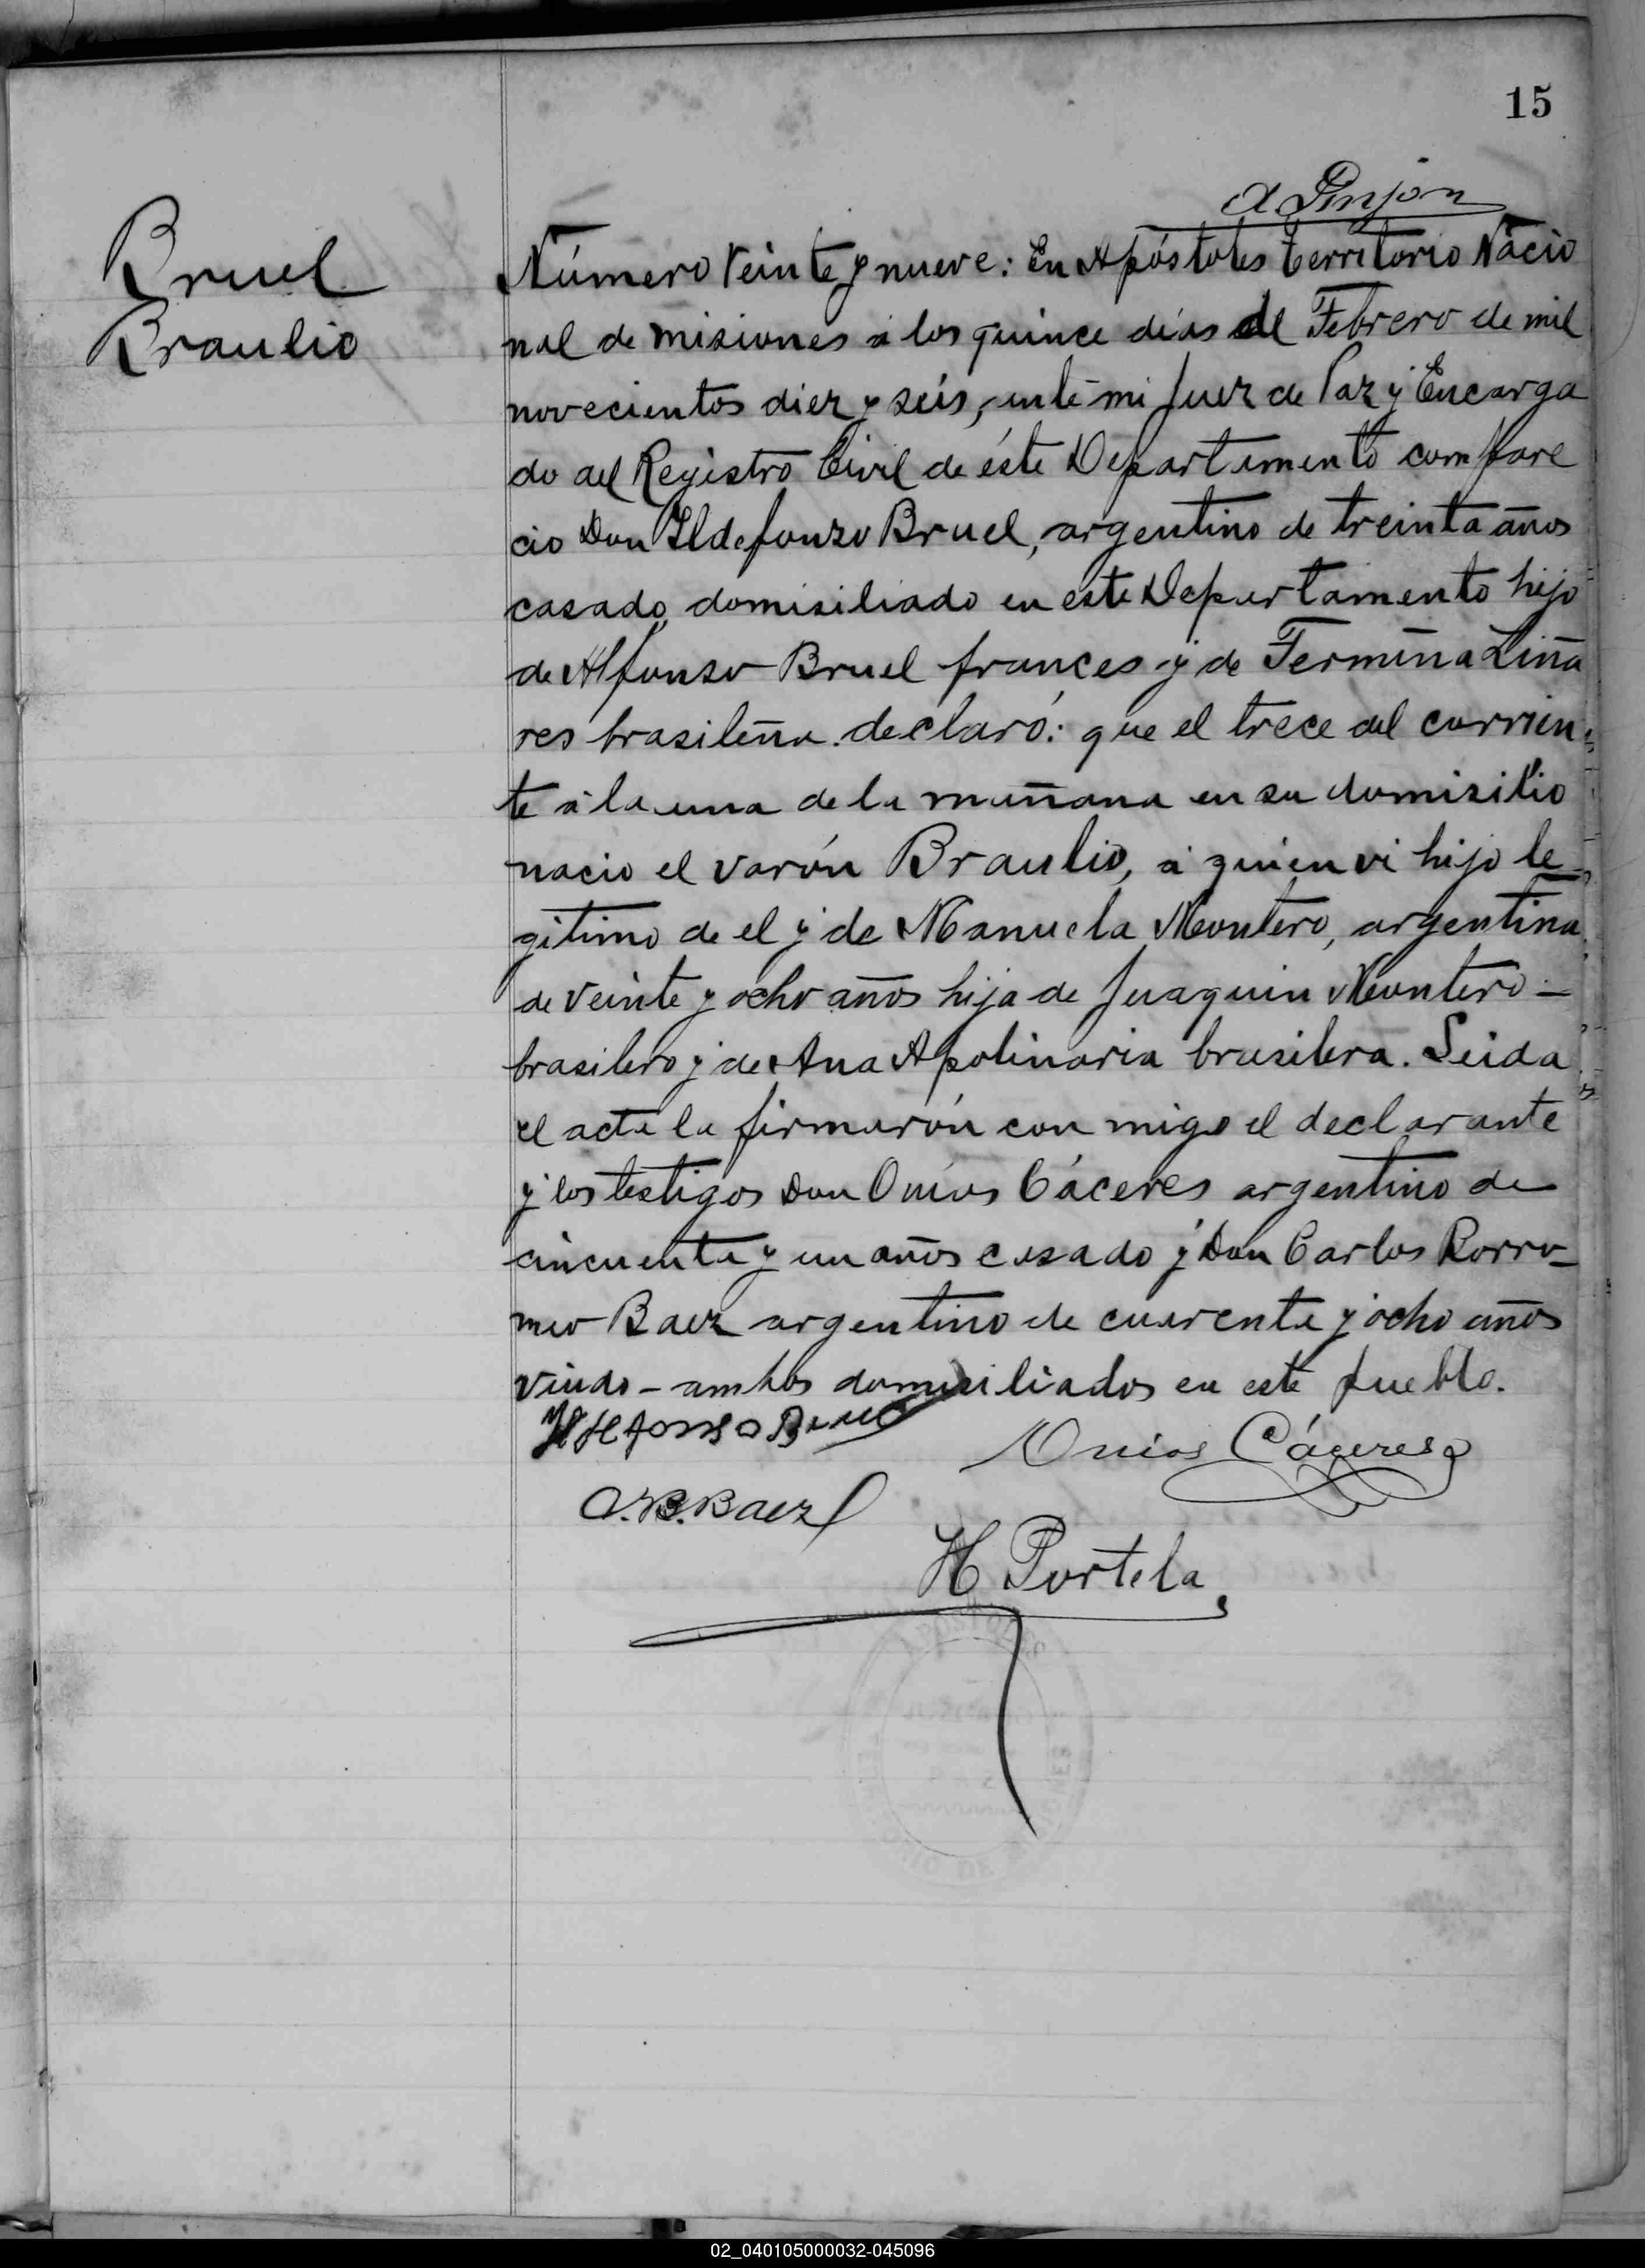 15
A Pinjon
Bruel
Braulio
Número veinte y nueve: En Apóstoles territorio Nacio
nal de misiones á los quince días del Febrero de mil
novecientos diez y seis, ante mi Juez de Paz y Encarga
do del Registro Civil de éste Departamento compare
cio Don Ildefonzo Bruel, argentino de treinta años
casado, domisiliado en este Departamento hijo
de Alfonso Bruel frances y de Fermina Liña
res brasileña. declaró: que el trece del corrien
te á la una de la mañana en su domisilio
nacio el varón Braulio, á quien vi hijo le
gitimo de el y de Manuela Montero, argentina
de veinte y ocho años hija de Juaquin Montero -
brasilero y de Ana Apolinaria brasilera. Leida
el acta la firmarón con migo el declarante
y los testigos Don Onias Cáceres argentino de
cincuenta y un años casado y Don Carlos Borro-
meo Baez argentino de cuarenta y ocho años
viudo - ambos domisiliados en este pueblo.
Ildefonso Bruel
Onias Cáceres
C.B. Baez
H Portela
02_040105000032-045096